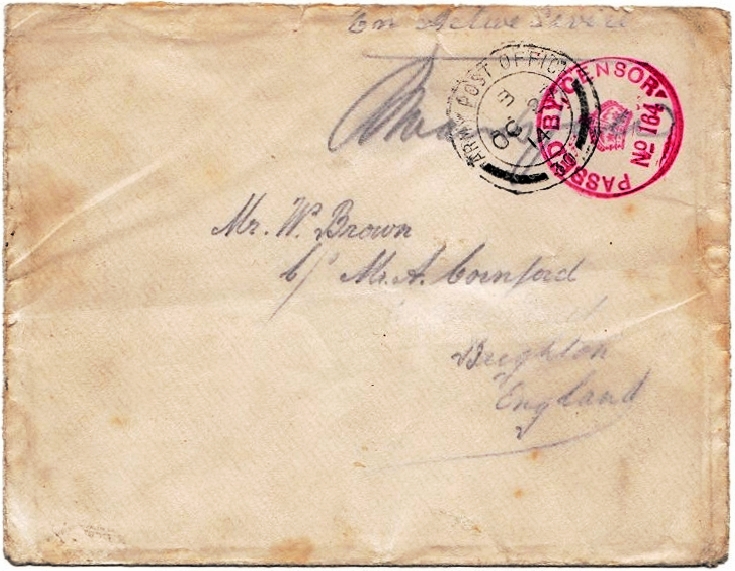 On Active Servire
ARMY POST OFFICE
E
OC
14
PASSED BY CENSOR
No 164
Mr. W. Brown
c/o Mr. A. Cornford
Brighton
England